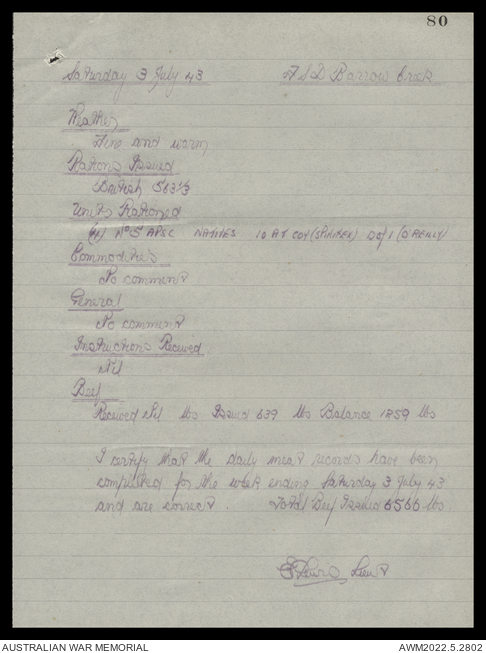 80
Saturday 3 July 43 FSD Barrow Creek
Weather
Fine and warm
Rations Issued
British 563⅓
Units Rationed
No 5 APSC NATIVES 10 AT COY (SPINIFEX) (O'REILLY)
Commodities
No comment
General
No comment
Instructions Received
Nil
Beef
Received Nil lbs Issued 639 lbs Balance 1859 lbs
I certify that the daily meat records have been
completed for the week ending Saturday 3 July 43
and are correct. Total Beef Issued 6566 lbs
Lieut
AUSTRALIAN WAR MEMORIAL AWM2022.5.2802